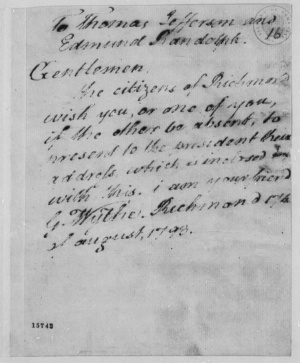 To Thomas Jefferson and
Edmund Randolph.
16
Gentlemen,
The citizens of Richmond
wish you, or one of you,
if the other be absent, to
present to the president their
address which is inclosed
with this. i am your friend
G. Wythe. Richmond
of august, 1793.
13742